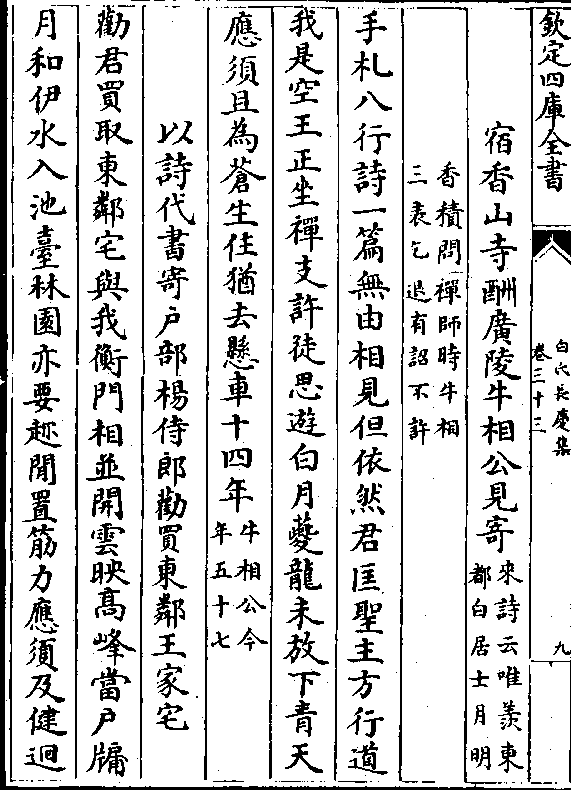 欽定四庫全書
白氏長慶集
卷三十三
九
宿香山寺酬廣陵牛相公見寄
來詩云唯羨東
都白居士月明
香積問禪師時牛相
三表乞退有詔不許
手札八行詩一篇無由相見但依然君匡聖主方行道
我是空王正坐禪支許徒思遊白月夔龍未放下青天
應須且為蒼生住猶去懸車十四年
牛相公今
年五十七
以詩代書寄户部楊侍郎勸買東鄰王家宅
勸君買取東鄰宅與我衡門相並開雲映髙峰當户牖
月和伊水入池臺林園亦要趂閒置筋力應須及健迴